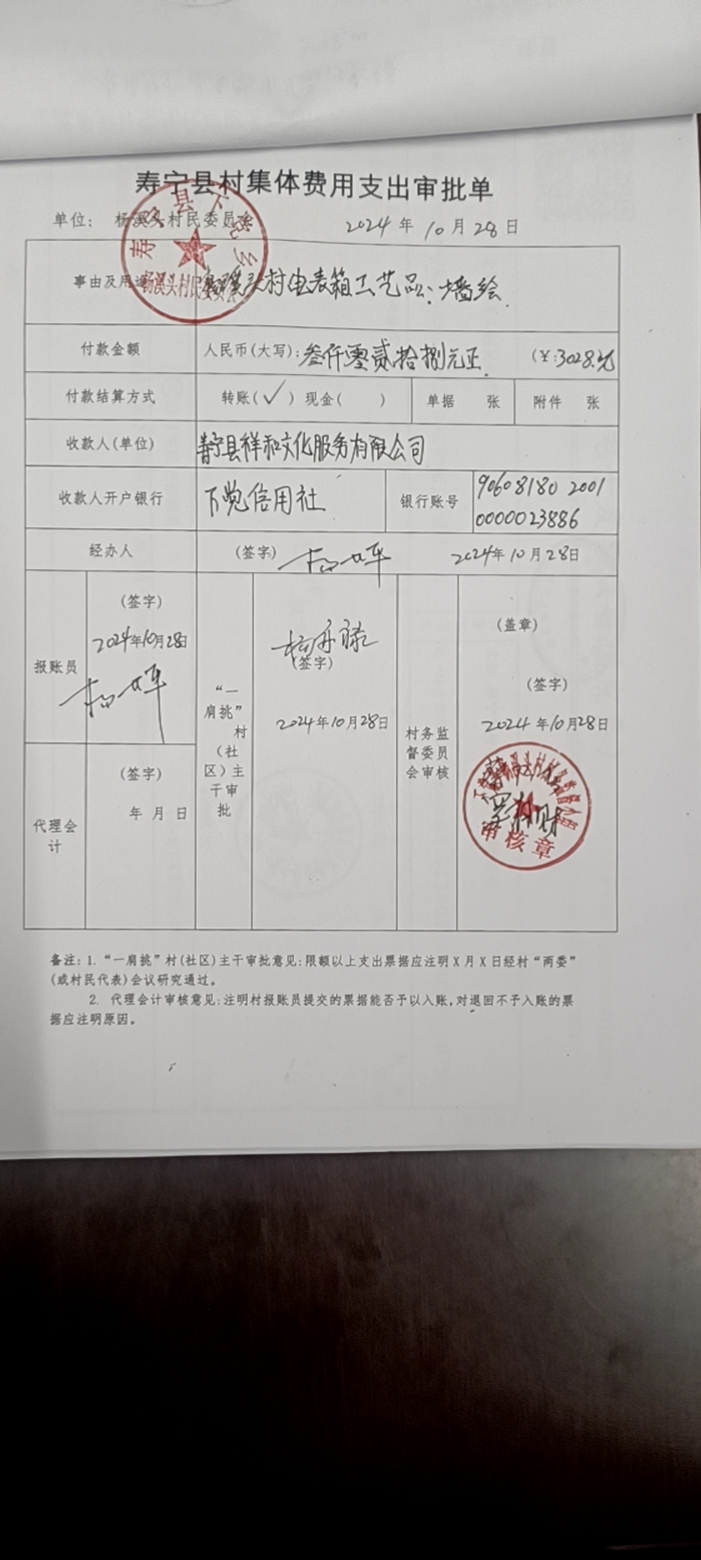 寿宁县村集体费用支出审批单
单位： 杨溪头村民委员会 2024 年 10 月 28 日
事由及用途 杨溪头村电表箱工艺品：墙绘
付款金额 人民币(大写)：叁仟零贰拾捌元正 (￥:3028元
付款结算方式 转账(✓) 现金( ) 单据 张 附件 张
收款人(单位) 寿宁县祥和文化服务有限公司
收款人开户银行 下党信用社 银行账号 90608180 2001
0000023886
经办人 (签字) 2024年10月28日
报账员
(签字)
2024年10月28日
代理会
计
(签字)
年 月 日
“一
肩挑”
村
(社
区)主
干审
批
(签字)
2024年10月28日
村务监
督委员
会审核
(盖章)
(签字)
2024 年10月28日
审核章
备注：1. “一肩挑”村(社区)主干审批意见：限额以上支出票据应注明X月X日经村“两委”
(或村民代表)会议研究通过。
2. 代理会计审核意见：注明村报账员提交的票据能否予以入账,对退回不予入账的票
据应注明原因。
寿宁县下党乡
杨溪头村民委员会